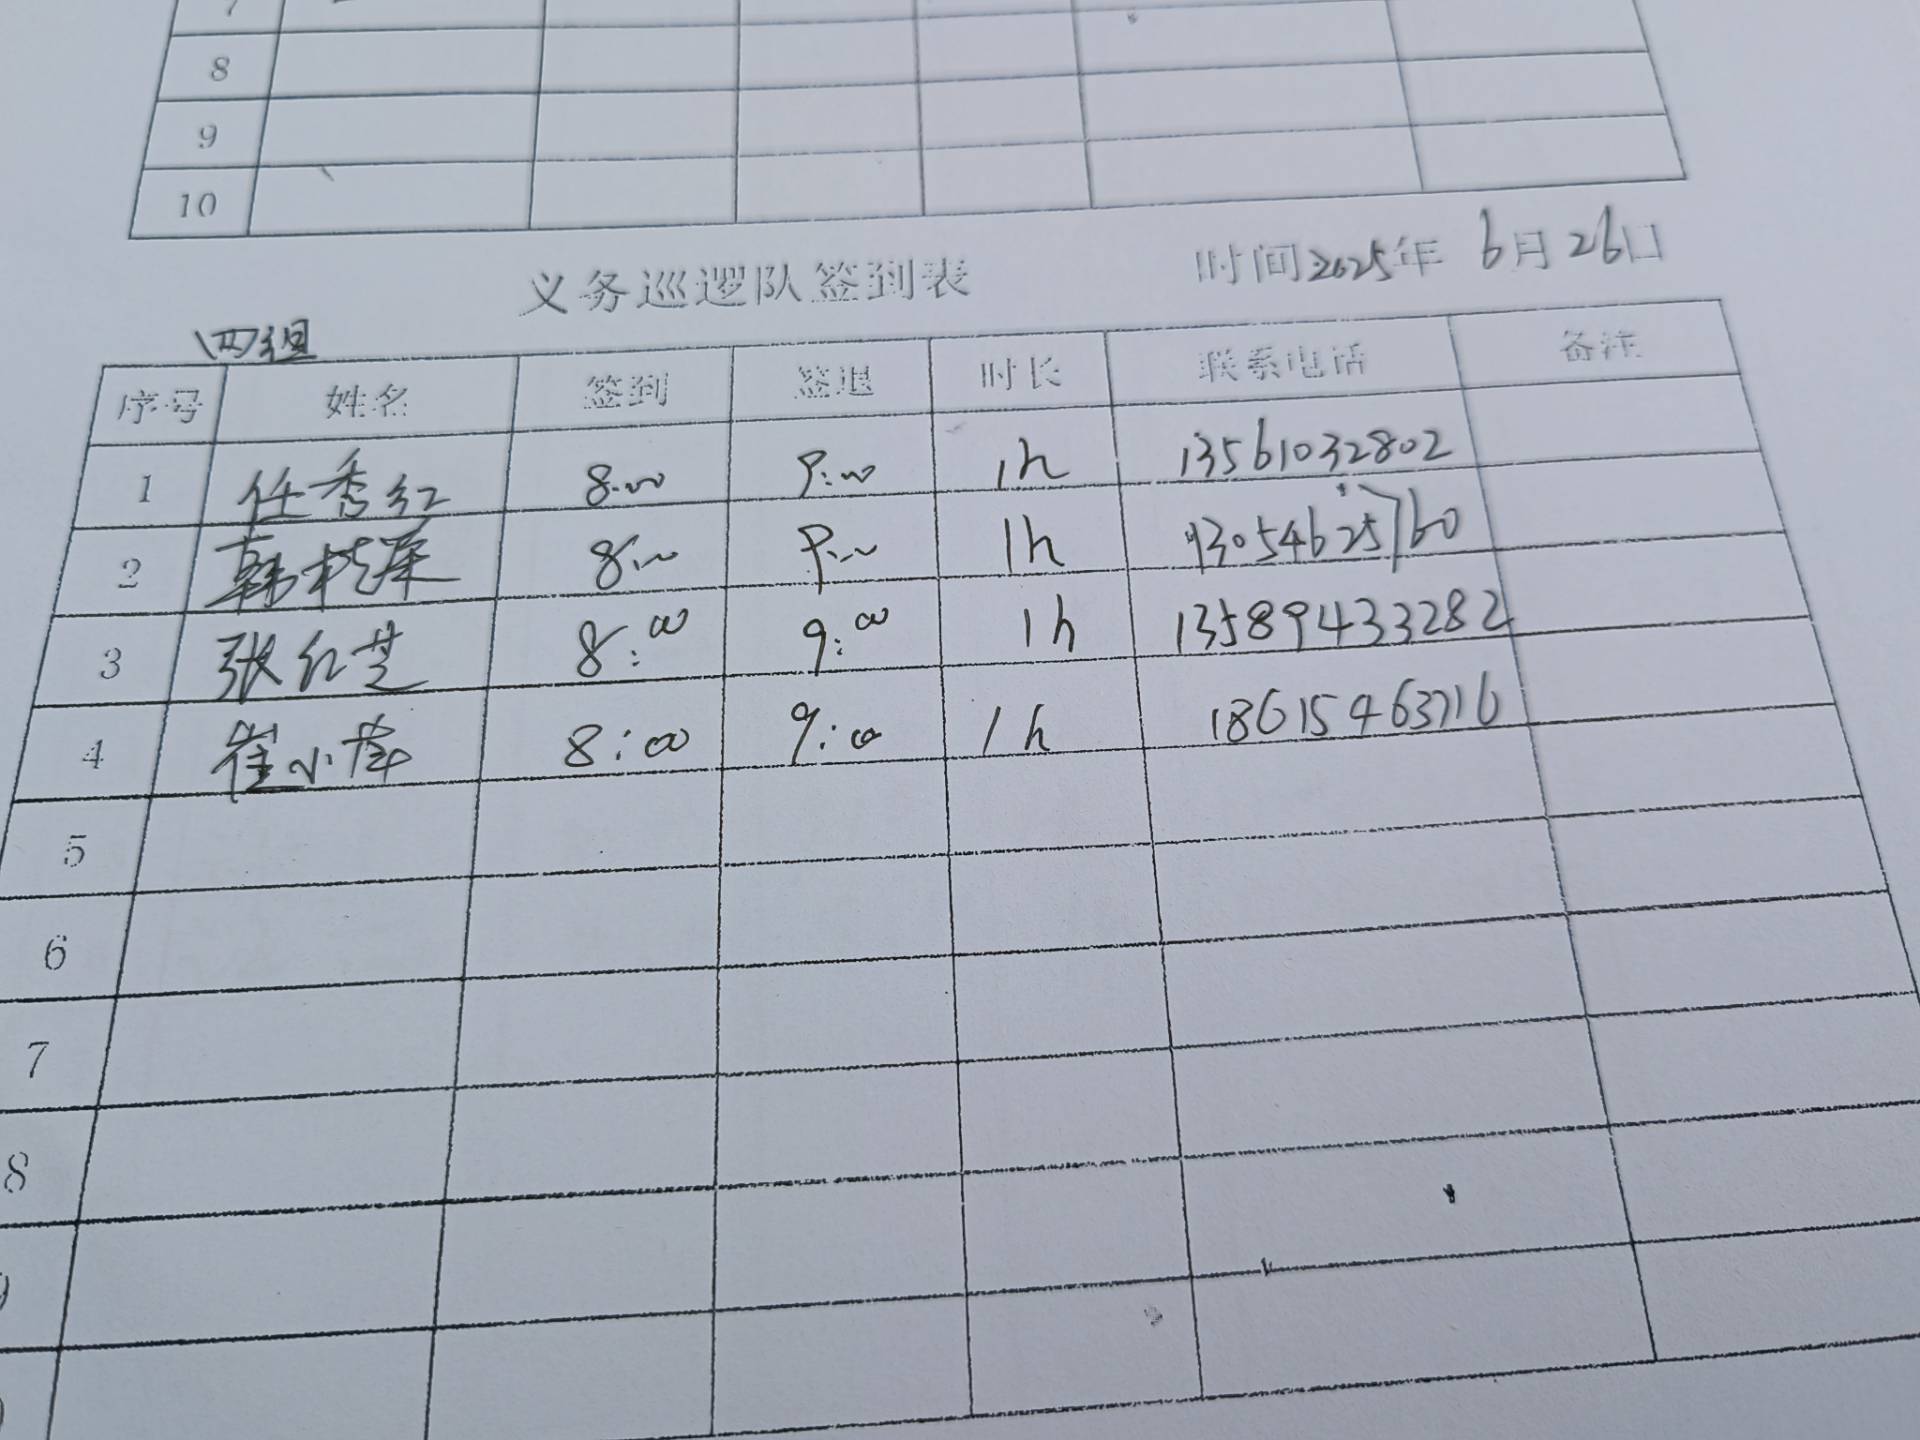 7
8
9
10
义务巡逻队签到表 时间2025年 6月26日
四组
序号 姓名 签到 签退 时长 联系电话 备注
1 任秀红 8:00 9:00 1h 13561032802
2 韩 8:00 9:00 1h 13054625760
3 张红芝 8:00 9:00 1h 13589433282
4 崔小萍 8:00 9:00 1h 18615463716
5
6
7
8
9